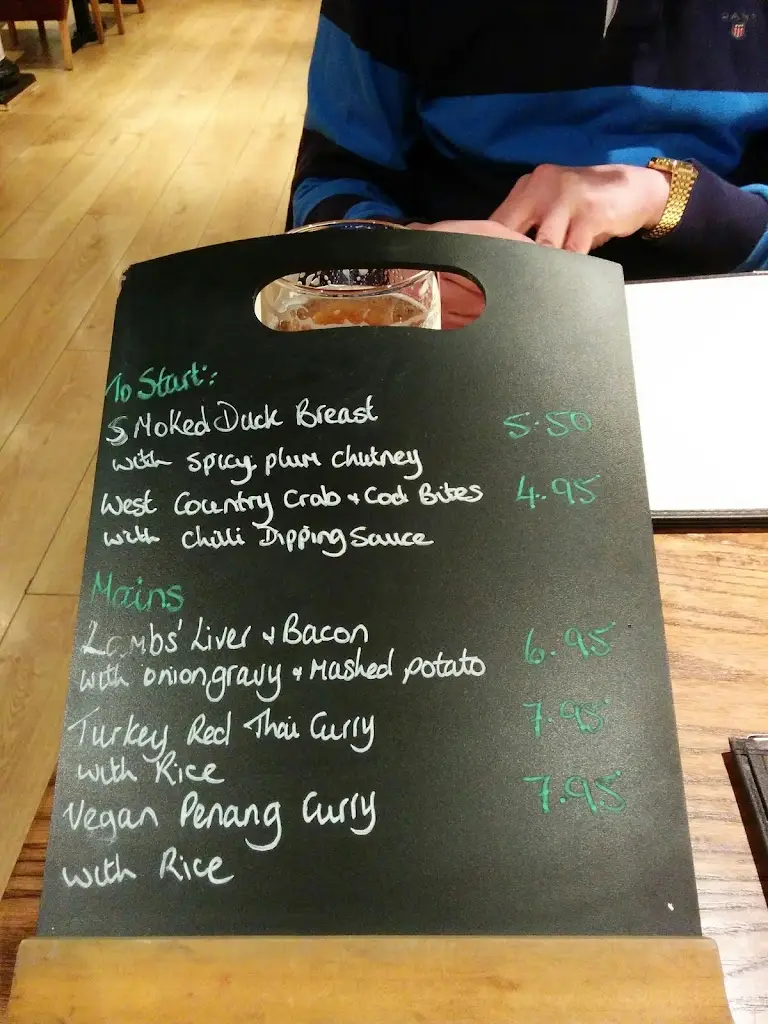 To Start:
Smoked Duck Breast 5.50
with spicy plum chutney
West Country Crab + Cod Bites 4.95
with chilli Dipping Sauce
Mains
Lambs' Liver + Bacon 6.95
with onion gravy + Mashed potato
Turkey Red Thai Curry 7.95
with Rice
Vegan Penang Curry 7.95
with Rice